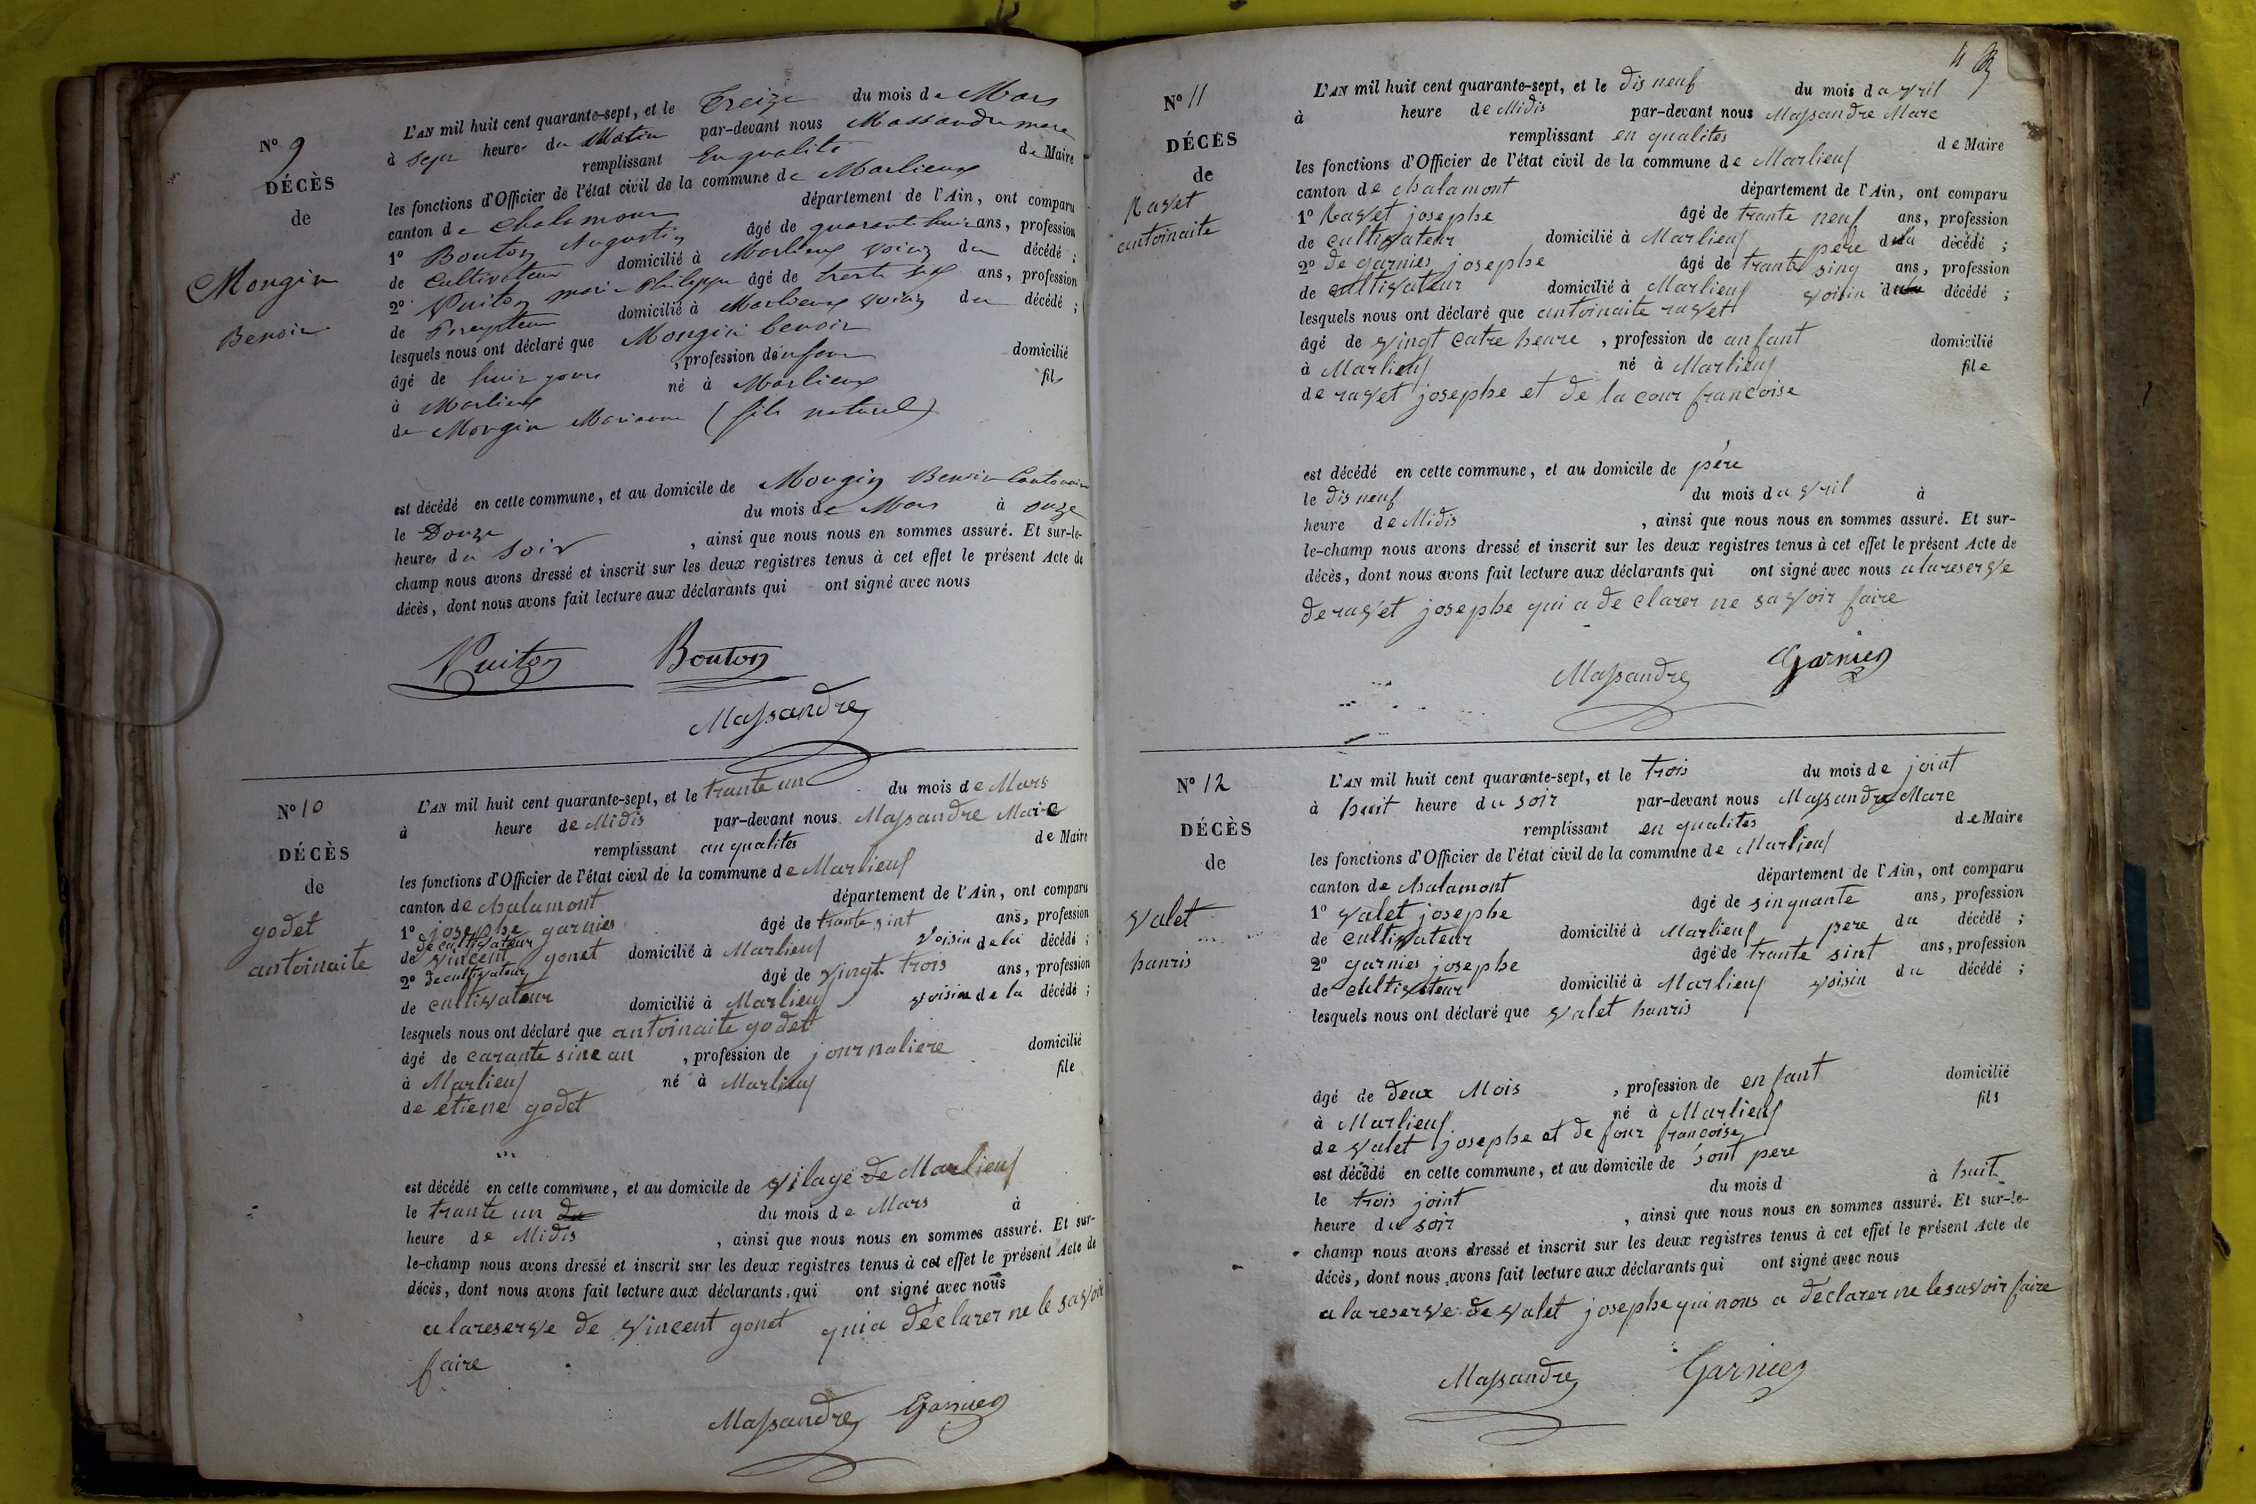 Nº 9
DÉCÈS
de
Mongin
Benoit
L'AN mil huit cent quarante-sept, et le Treize du mois de Mars
à sept heures du Matin par-devant nous Massandre maire
remplissant En qualité de Maire
les fonctions d'Officier de l'état civil de la commune de Marlieux
canton de Chalamont département de l'Ain, ont comparu
1º Bouton Augustin âgé de quarante huit ans, profession
de Cultivateur domicilié à Marlieux voisin du décédé ;
2º Vuiton marie Philippe âgé de trente six ans, profession
de Percepteur domicilié à Marlieux voisin du décédé ;
lesquels nous ont déclaré que Mongin benoit
âgé de huit jours , profession d'enfant domicilié
à Marlieux né à Marlieux fils
de Mongin Marianne (fils naturel)
est décédé en cette commune, et au domicile de Mongin Benoit Cantonnier
le Douze du mois de Mars à onze
heures du soir , ainsi que nous nous en sommes assuré. Et sur-le-
champ nous avons dressé et inscrit sur les deux registres tenus à cet effet le présent Acte de
décès, dont nous avons fait lecture aux déclarants qui ont signé avec nous
Vuiton Bouton
Massandre
Nº 10
DÉCÈS
de
godet
antoinaite
L'AN mil huit cent quarante-sept, et le trante un du mois de Mars
à heure de Midis par-devant nous Massandre Maire
remplissant an qualites de Maire
les fonctions d'Officier de l'état civil de la commune de Marlieuf
canton de chalamont département de l'Ain, ont comparu
1º josephe garnier âgé de trante sint ans, profession
de cultivateur
de vincent gonet domicilié à Marlieuf voisin de la décédé ;
2º de cultivateur âgé de vingt trois ans, profession
de cultivateur domicilié à Marlieuf voisin de la décédé ;
lesquels nous ont déclaré que antoinaite godet
âgé de carante sinc an , profession de journaliere domicilié
à Marlieuf né à Marlieuf file
de étiene godet
est décédé en cette commune, et au domicile de vilage de Marlieuf
le trante un du du mois de Mars à
heure de Midis , ainsi que nous nous en sommes assuré. Et sur-
le-champ nous avons dressé et inscrit sur les deux registres tenus à cet effet le présent Acte de
décès, dont nous avons fait lecture aux déclarants qui ont signé avec nous
a la reserve de vincent gonet qui a declarer ne le savoir
faire
Massandre Garnier
11
Nº 11
DÉCÈS
de
Ravet
antoinaite
L'AN mil huit cent quarante-sept, et le dis neuf du mois d avril
à heure de Midis par-devant nous Massandre Mare
remplissant en qualites de Maire
les fonctions d'Officier de l'état civil de la commune de Marlieuf
canton de chalamont département de l'Ain, ont comparu
1º Ravet josephe âgé de trante neuf ans, profession
de cultivateur domicilié à Marlieuf père de la décédé ;
2º de garnier josephe âgé de trante sinq ans, profession
de cultivateur domicilié à Marlieuf voisin de la décédé ;
lesquels nous ont déclaré que antoinaite ravet
âgé de vingt catre heure , profession de anfant domicilié
à Marlieuf né à Marlieuf file
de ravet josephe et de la cour francoise
est décédé en cette commune, et au domicile de père
le dis neuf du mois d avril à
heure de Midis , ainsi que nous nous en sommes assuré. Et sur-
le-champ nous avons dressé et inscrit sur les deux registres tenus à cet effet le présent Acte de
décès, dont nous avons fait lecture aux déclarants qui ont signé avec nous a la reserve
de ravet josephe qui a de clarer ne savoir faire
Massandre Garnier
Nº 12
DÉCÈS
de
valet
hanris
L'AN mil huit cent quarante-sept, et le trois du mois de joint
à huit heure du soir par-devant nous Massandre Mare
remplissant en qualites de Maire
les fonctions d'Officier de l'état civil de la commune de Marlieuf
canton de chalamont département de l'Ain, ont comparu
1º valet josephe âgé de sinquante ans, profession
de cultivateur domicilié à Marlieuf pere du décédé ;
2º garnier josephe âgé de trante sint ans, profession
de cultivateur domicilié à Marlieuf voisin du décédé ;
lesquels nous ont déclaré que valet hanris
âgé de deux Mois , profession de enfant domicilié
à Marlieuf né à Marlieuf fils
de valet josephe et de four francoise
est décédé en cette commune, et au domicile de sont pere
le trois joint du mois d à huit
heure du soir , ainsi que nous nous en sommes assuré. Et sur-le-
champ nous avons dressé et inscrit sur les deux registres tenus à cet effet le présent Acte de
décès, dont nous avons fait lecture aux déclarants qui ont signé avec nous
a la reserve de valet josephe qui nous a declarer ne le savoir faire
Massandre Garnier